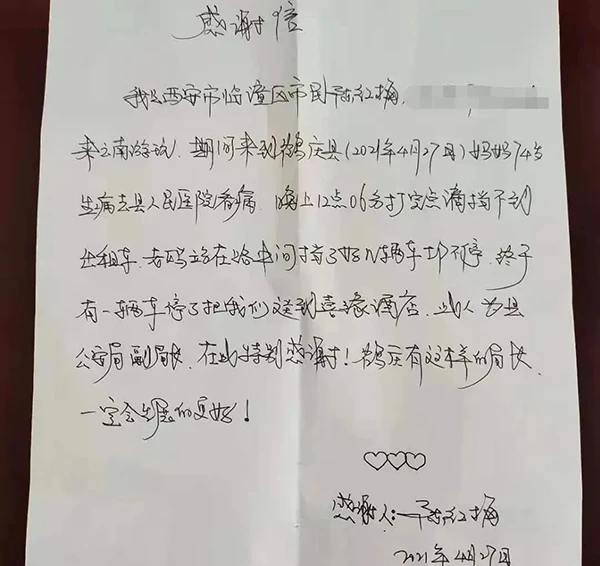 感谢信
我是西安市临潼区市民陈红梅,
来云南游玩,期间来到鹤庆县(2021年4月27日)妈妈74岁
生病去县人民医院看病,晚上12点06分打完点滴挡不到
出租车,老妈站在路中间挡了好几辆车却不停,终于
有一辆车停了把我们送到喜源酒店,此人为县
公安局副局长,在此特别感谢!鹤庆有这样的局长,
一定会发展的更好!
感谢人:陈红梅
2021年4月27日